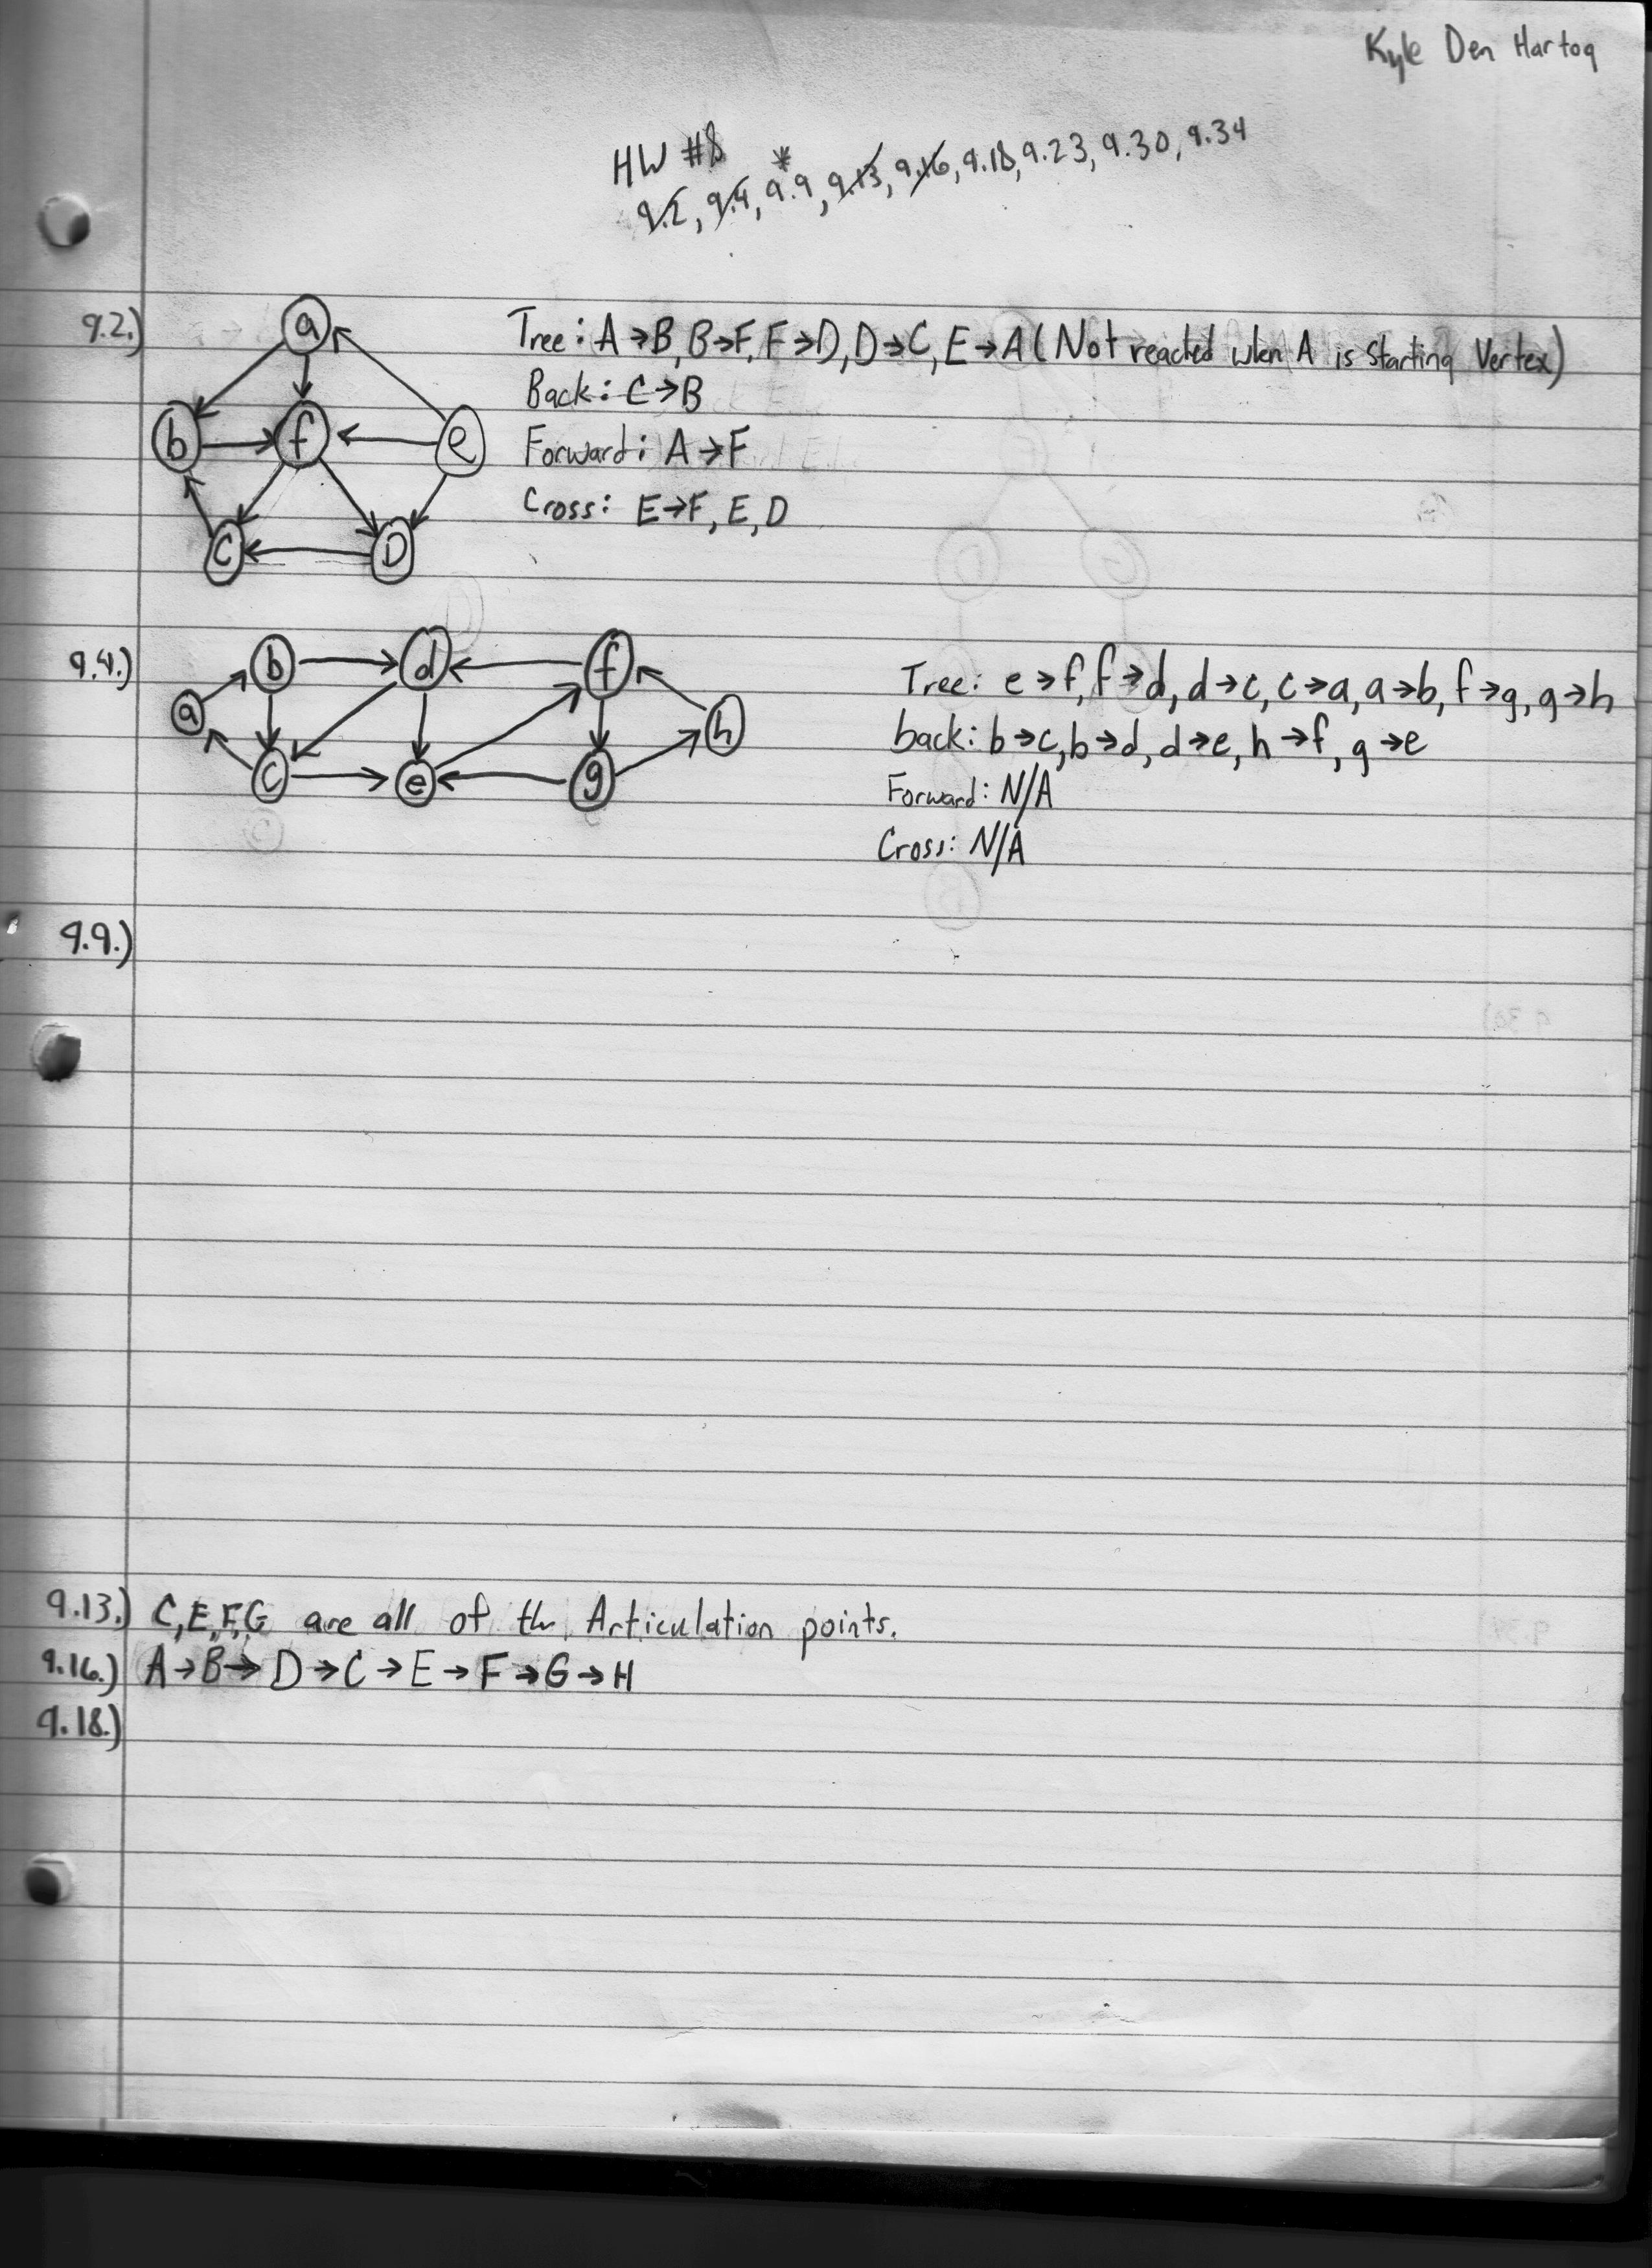 Kyle Den Hartog
HW #8
*
9.2, 9.4, 9.9, 9.13, 9.16, 9.18, 9.23, 9.30, 9.34
9.2.)
a
b f e
C D
Tree: A→B, B→F, F→D, D→C, E→A (Not reacted when A is Starting Vertex)
Back: C→B
Forward: A→F
Cross: E→F, E,D
9.4.)
b d f
a h
C e g
Tree: e→f, f→d, d→c, c→a, a→b, f→g, g→h
back: b→c, b→d, d→e, h→f, g→e
Forward: N/A
Cross: N/A
9.9.)
9.13.) C,E,F,G are all of the Articulation points.
9.16.) A→B→D→C→E→F→G→H
9.18.)